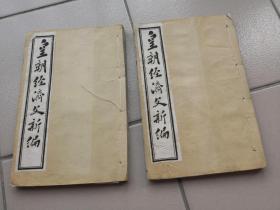 皇朝經濟文新編
皇朝經濟文新編